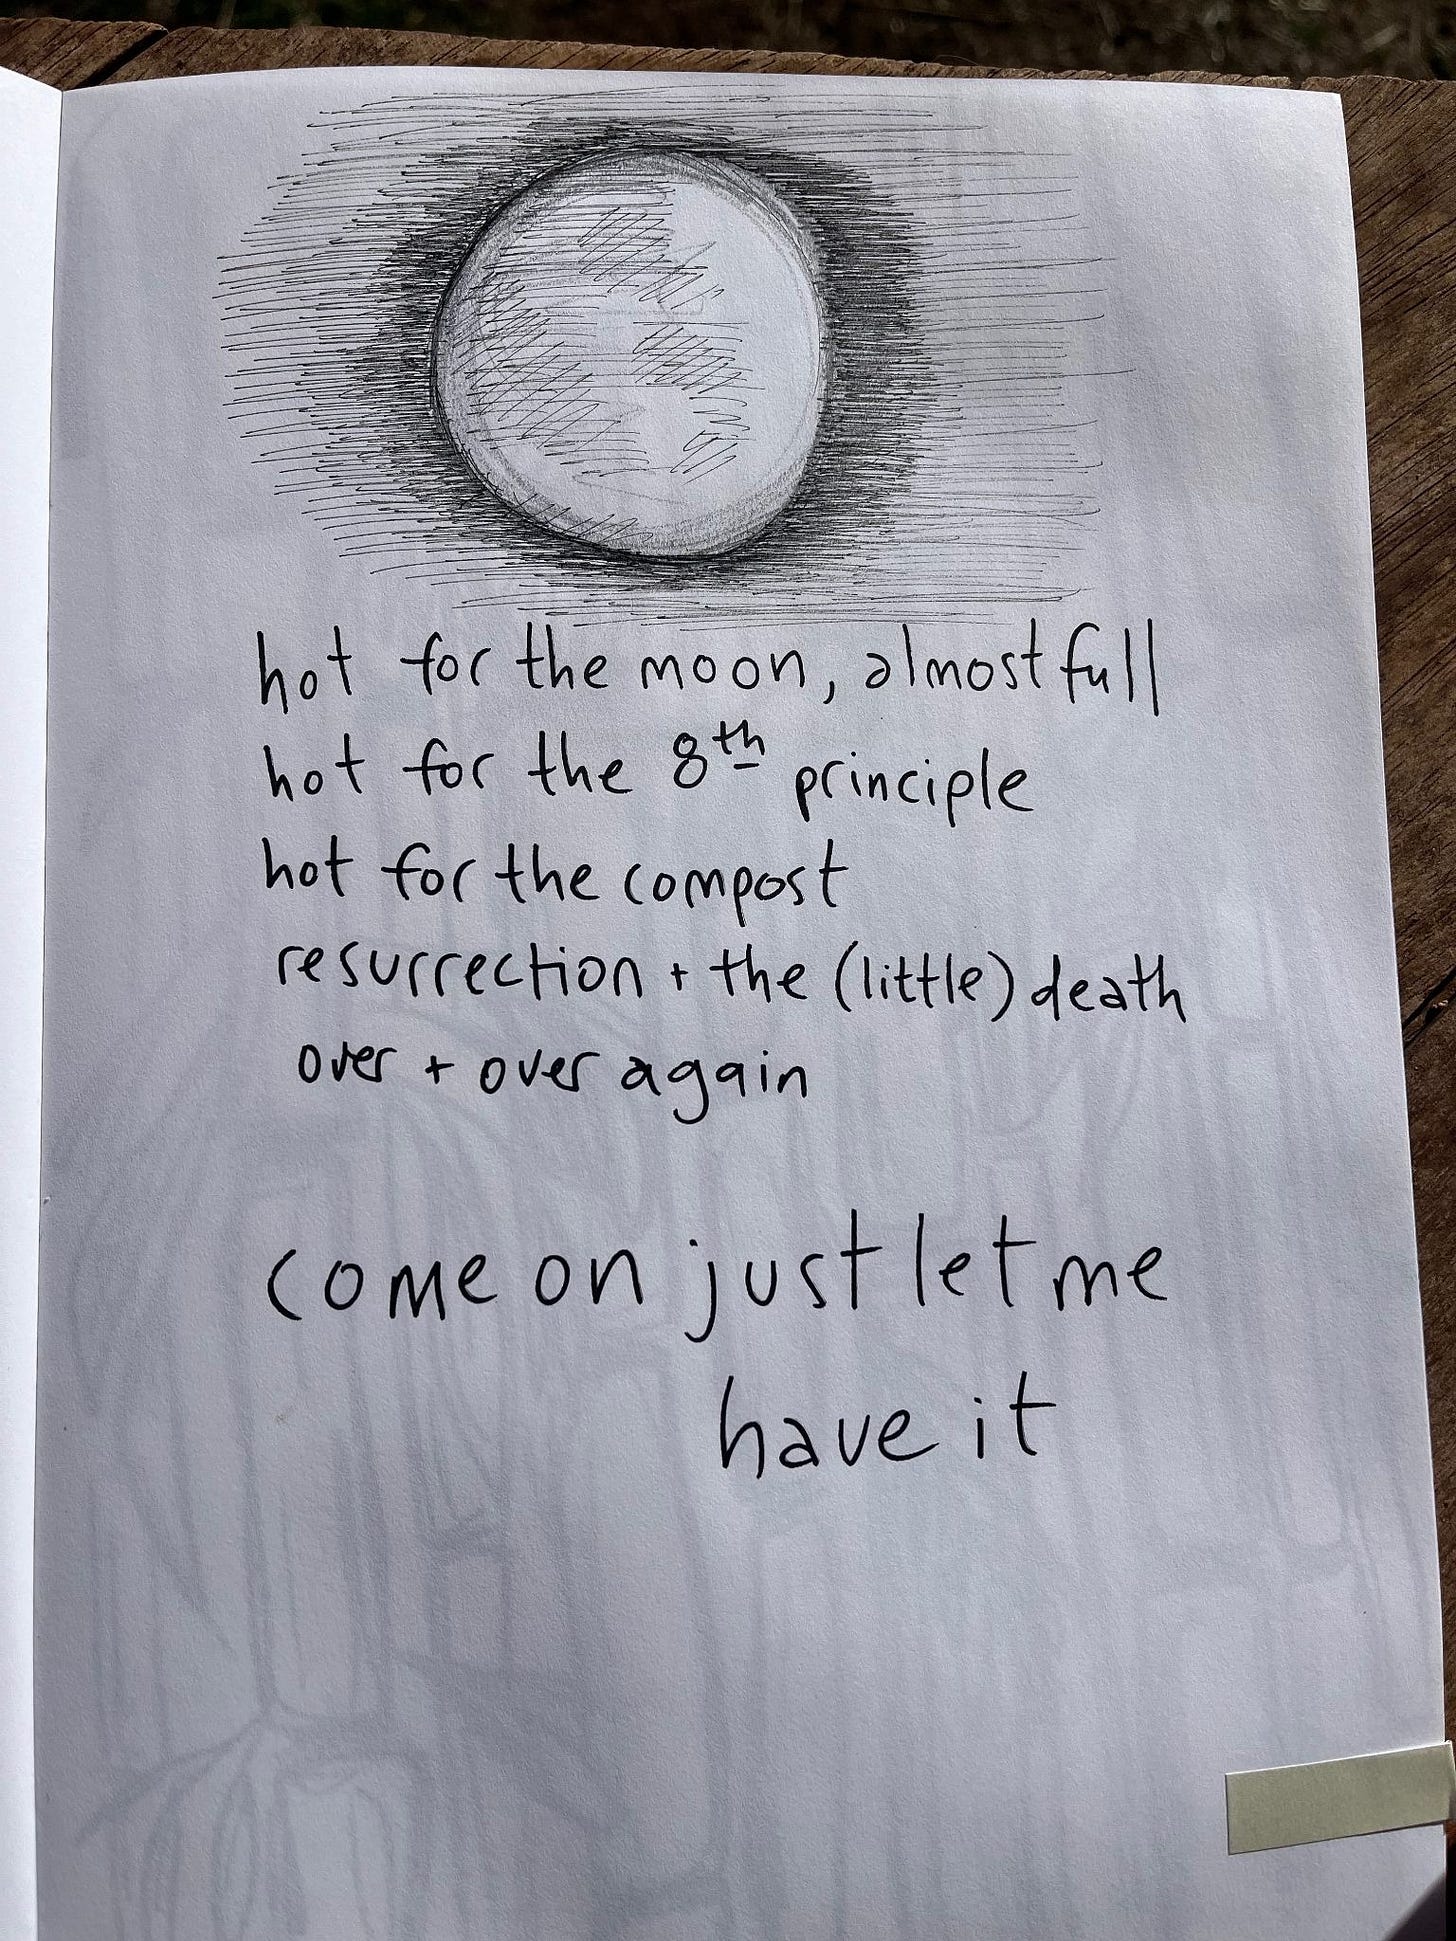 hot for the moon, almost full
hot for the 8th principle
hot for the compost
resurrection + the (little) death
over + over again
come on just let me
have it